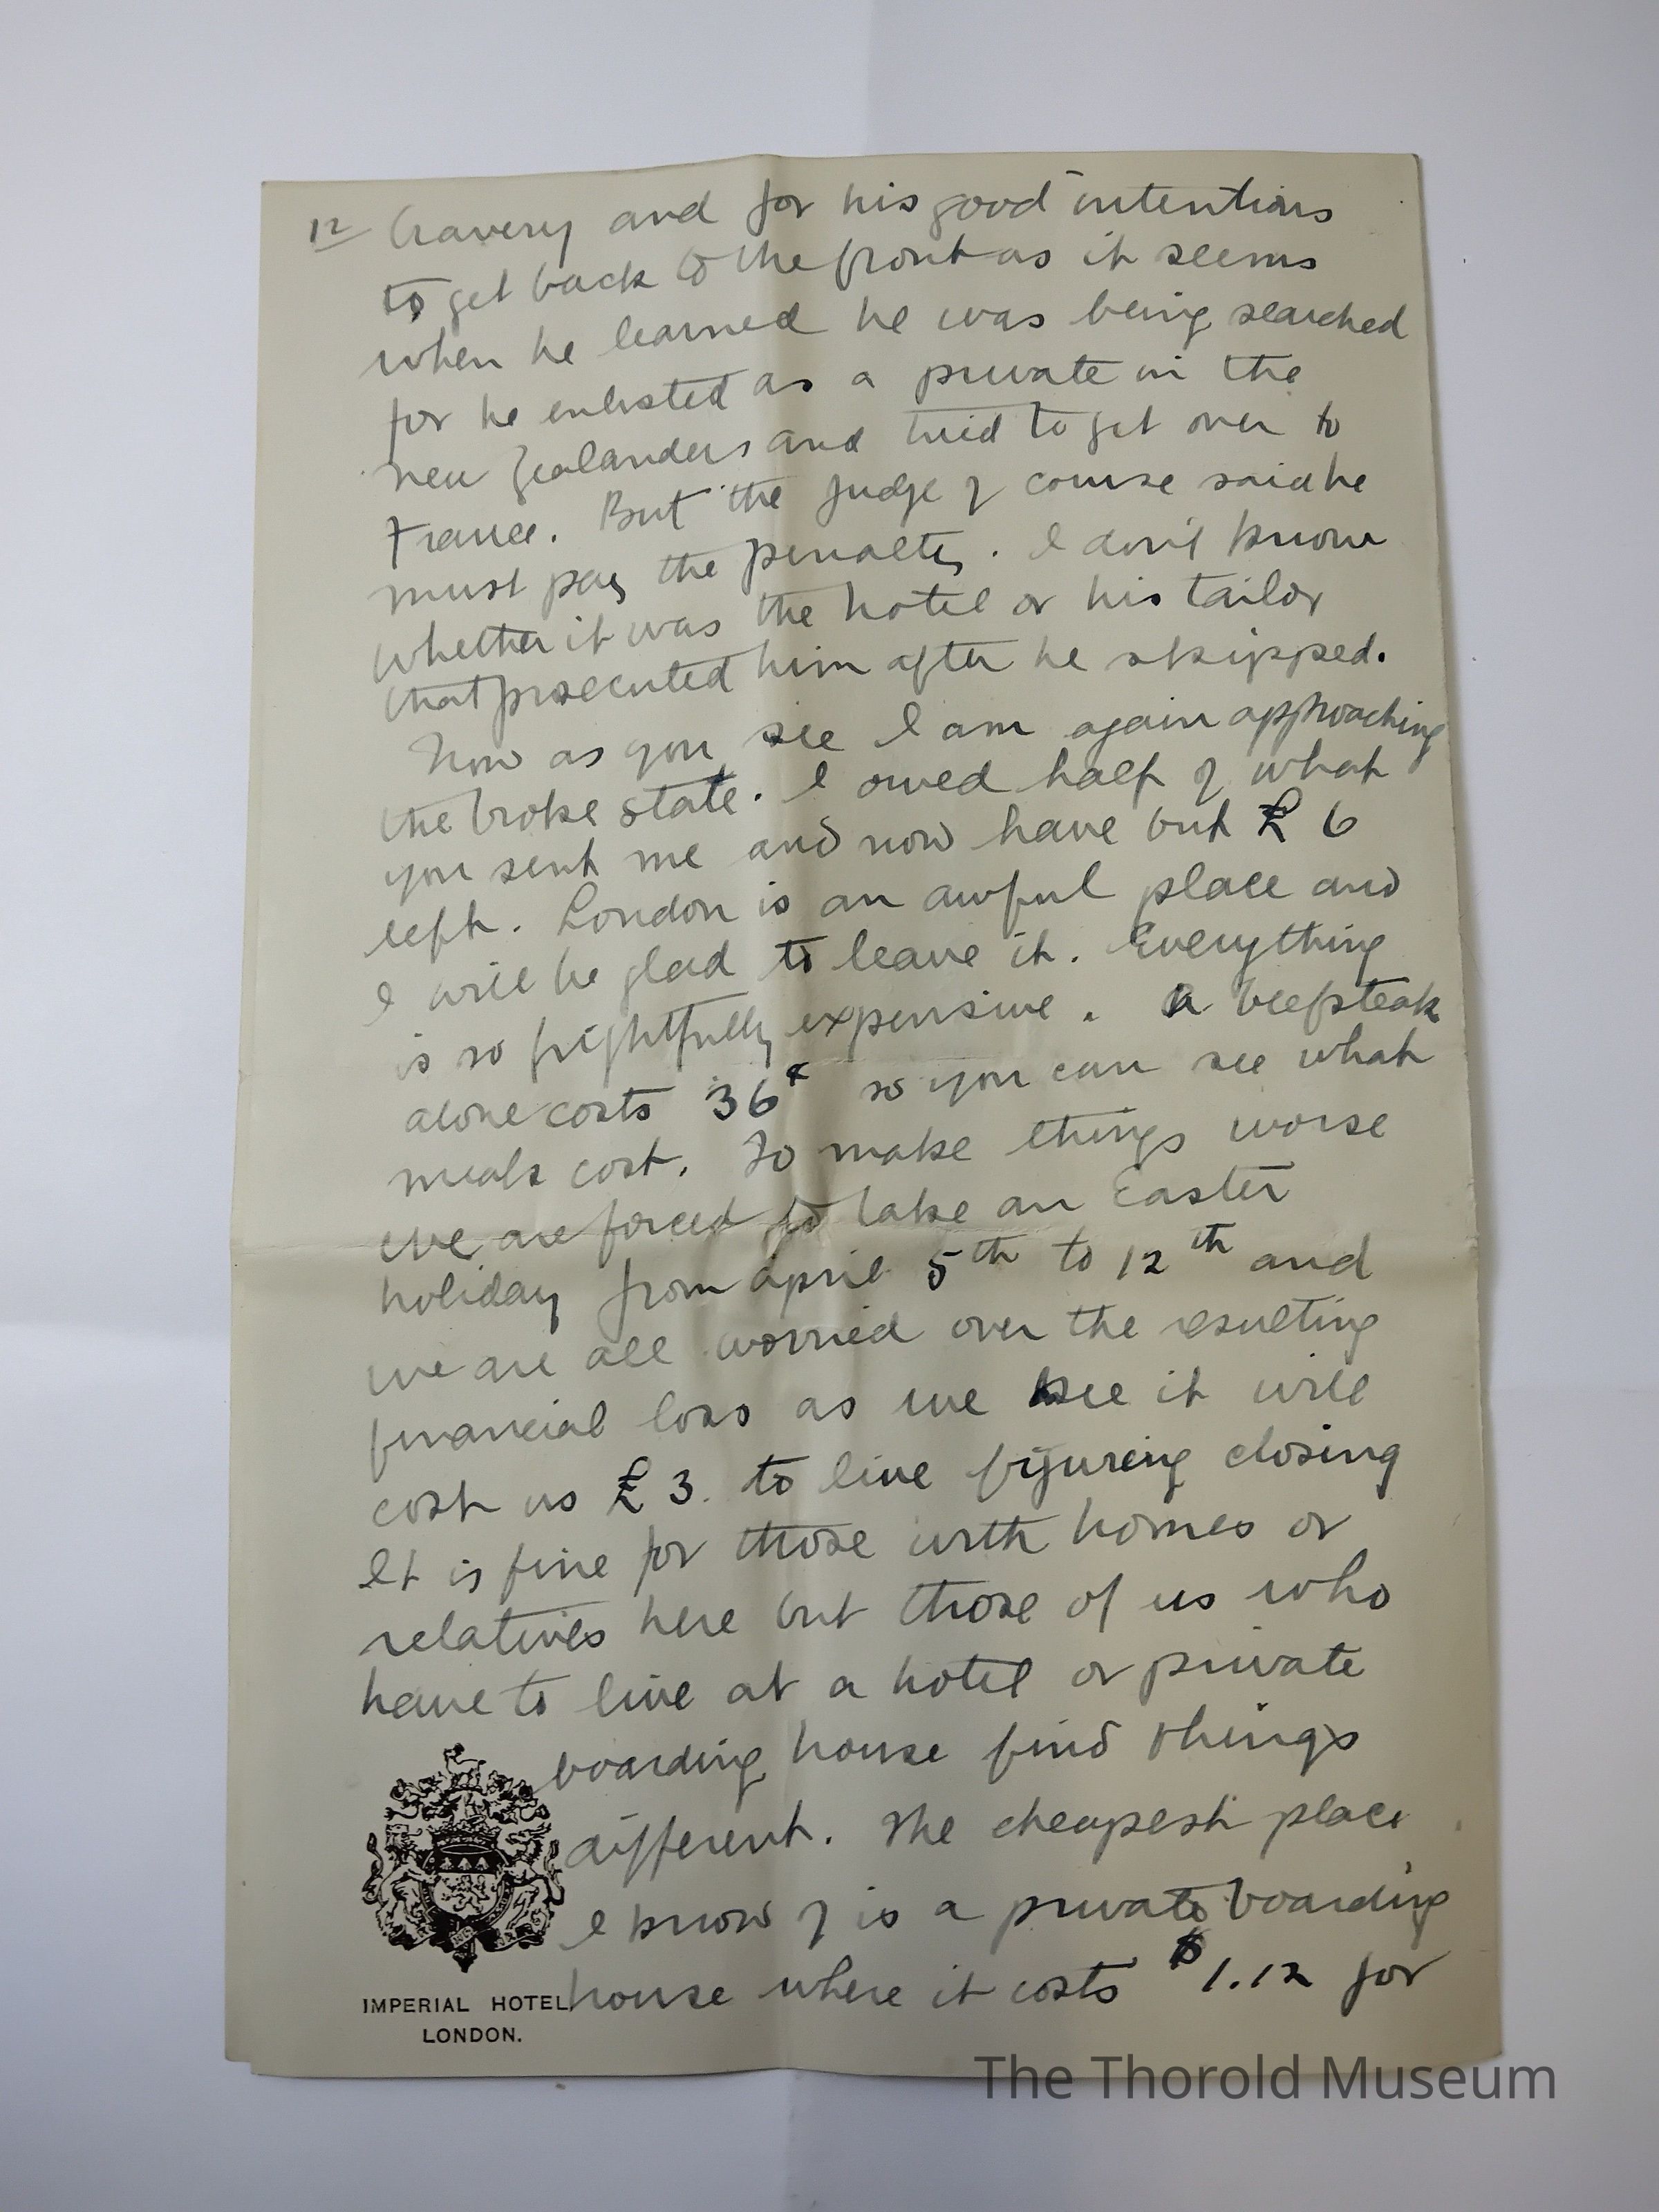 12 bravery and for his good intentions
to get back to the front as it seems
when he learned he was being searched
for he enlisted as a private in the
New Zealanders and tried to get over to
France. But the judge of course said he
must pay the penalty. I don't know
whether it was the hotel or his tailor
that prosecuted him after he skipped.
Now as you see I am again approaching
the broke state. I owed half of what
you sent me and now have but £6
left. London is an awful place and
I will be glad to leave it. Everything
is so frightfully expensive. A beefsteak
alone costs 36¢ so you can see what
meals cost. To make things worse
we are forced to take an Easter
holiday from April 5th to 12th and
we are all worried over the resulting
financial loss as we see it will
cost us £3. to live figuring closing
It is fine for those with homes or
relatives here but those of us who
have to live at a hotel or private
boarding house find things
different. The cheapest place
I know of is a private boarding
house where it costs $1.12 for
IMPERIAL HOTEL,
LONDON.
The Thorold Museum